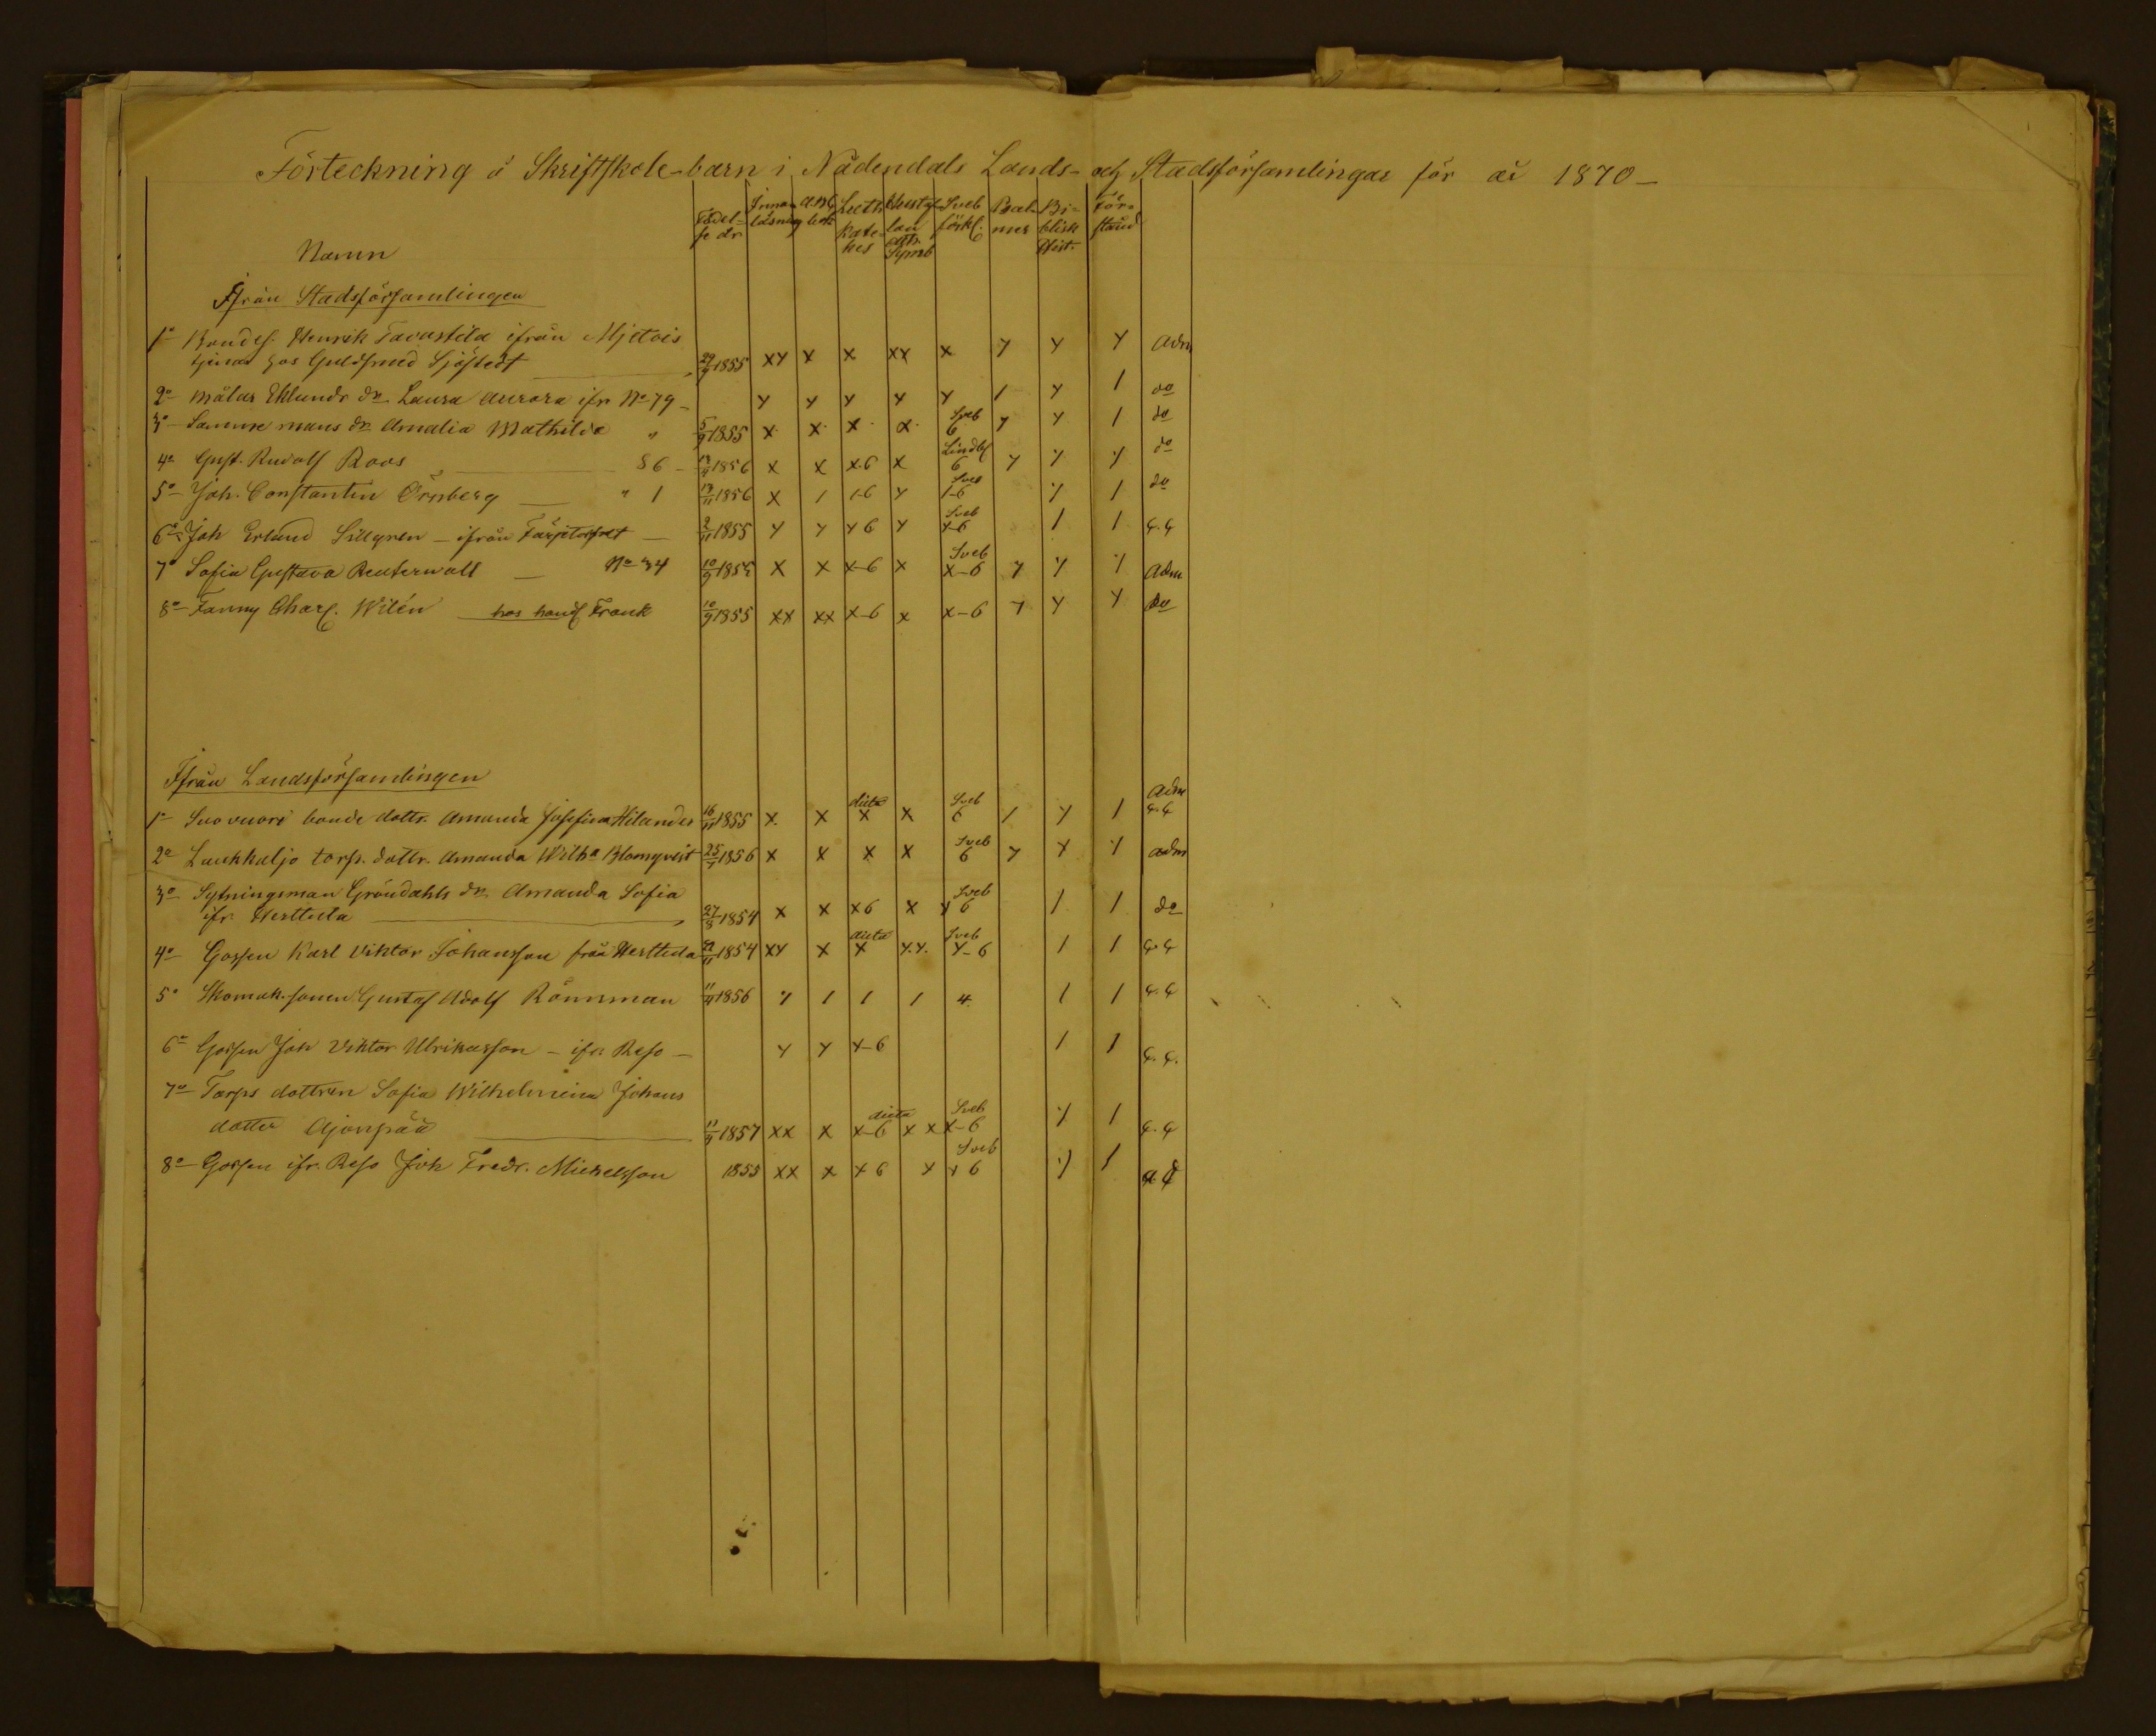 Förteckning å Skriftskole-barn i Nådendals Lands- och Stadsförsamlingar för år 1870 -
Namn Födel-se år Innan läsning A.B.C. bok Luth Kate-kes Hustaf-lan Symb Sveb förkl. Psal-mer Bi-blisk Hist. För-stånd
Ifrån Stadsförsamlingen
1o Bondes. Henrik Tavastila ifrån Mjetois
tjenar hos Guldsmed Sjöstedt 29/9 1855 xy x x xx x y y y Adm
2o Målar Eklunds dr. Laura Aurora ifr No 79 - y y y y y 1 y 1 do
3o Samme mans dr Amalia Mathilda " 5/9 1855 x x x x Sveb 6 y y 1 do
4o Gust. Rudolf Roos 86 - 1856 x x x-6 x Lindbl 6 y y y do
5o Joh. Constantin Örnberg " 1 13/11 1856 x 1 1-6 y Sveb 1-6 y 1 do
6o Joh Erland Sillgren - ifrån 2/11 1855 y y y 6 y Sveb y-6 1 1 q.q
7o Sofia Gustava Reuterwall No 34 10/9 1855 x x x-6 x Sveb x-6 y y 1 Adm
8o Fanny Charl. Wilén hos handl Frank 10/9 1855 xx xx x-6 x x-6 y y y do
Ifrån Landsförsamlingen
1o Suovuori bonde dottr. Amanda Josefina Hilander 16/11 1855 x x dicta x x Sveb 6 1 y 1 Adm q.q
2o Luukkaljo torp. dottr. Amanda Wilha Blomqvist 25/7 1856 x x x x Sveb 6 y y y adm
3o Sytningsman Gröndahls dr. Amanda Sofia
ifr. Herttula 27/8 1854 x x x 6 x Sveb y 6 1 1 do
4o Gossen Karl Viktor Johansson från Herttula 1854 xy x dicta x y.y. Sveb y-6 1 1 q.q
5o Skomak. sonen Gustaf Adolf Rönnman 1856 y 1 1 1 4 1 1 q.q
6o Gossen Joh Viktor Ulrikasson - ifr. Reso - y y y-6 1 1 q.q.
7o Torps dottren Sofia Wilhelmina Johans
dotter Ajonpää 11/9 1857 xx x dicta x-6 x x Sveb x-6 y 1 q.q
8o Gossen ifr. Reso Joh Fredr. Mickelsson 1855 xx x x 6 x Sveb y 6 y 1